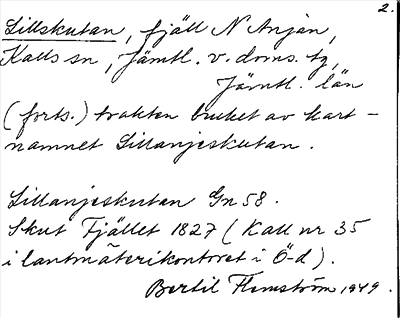 2.
Lillskutan, fjäll N Anjan,
Kalls sn, Jämtl. v. doms. tg,
Jämtl. län
(forts.) trakten bruket av kart-
namnet Lillanjeskutan.
Lillanjeskutan Gn 58.
Skut Fjället 1827 (Kall nr 35
i lantmäterikontoret i Ö-d).
Bertil Flemström 1949.